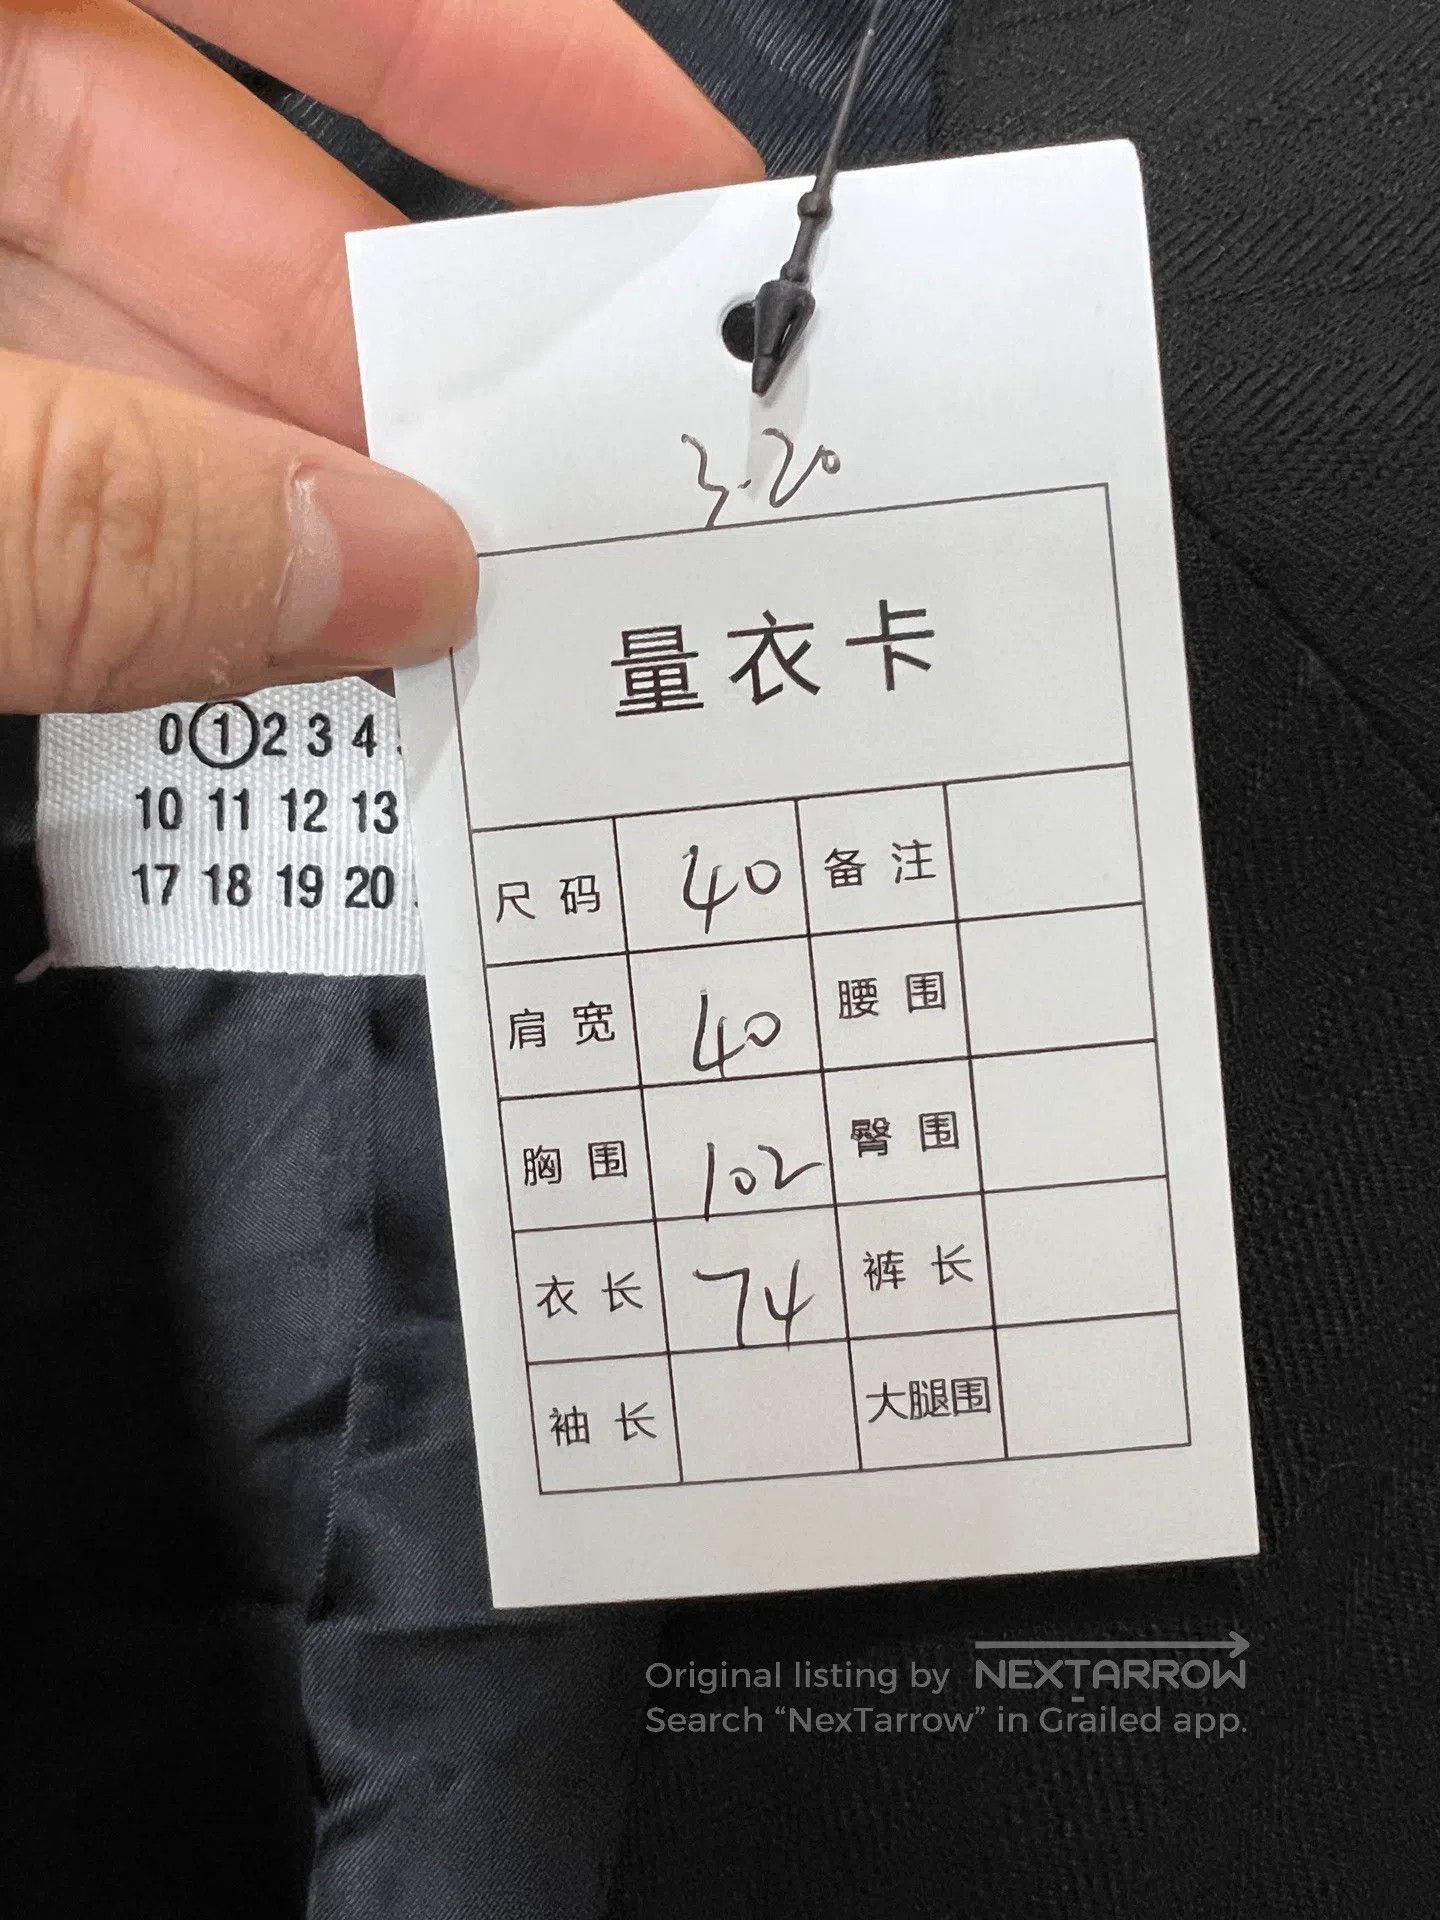 3.20
量衣卡
0 1 2 3 4
10 11 12 13
17 18 19 20
尺码 40 备注
肩宽 40 腰围
胸围 102 臀围
衣长 74 裤长
袖长 大腿围
Original listing by NEXTARROW
Search “NexTarrow” in Grailed app.